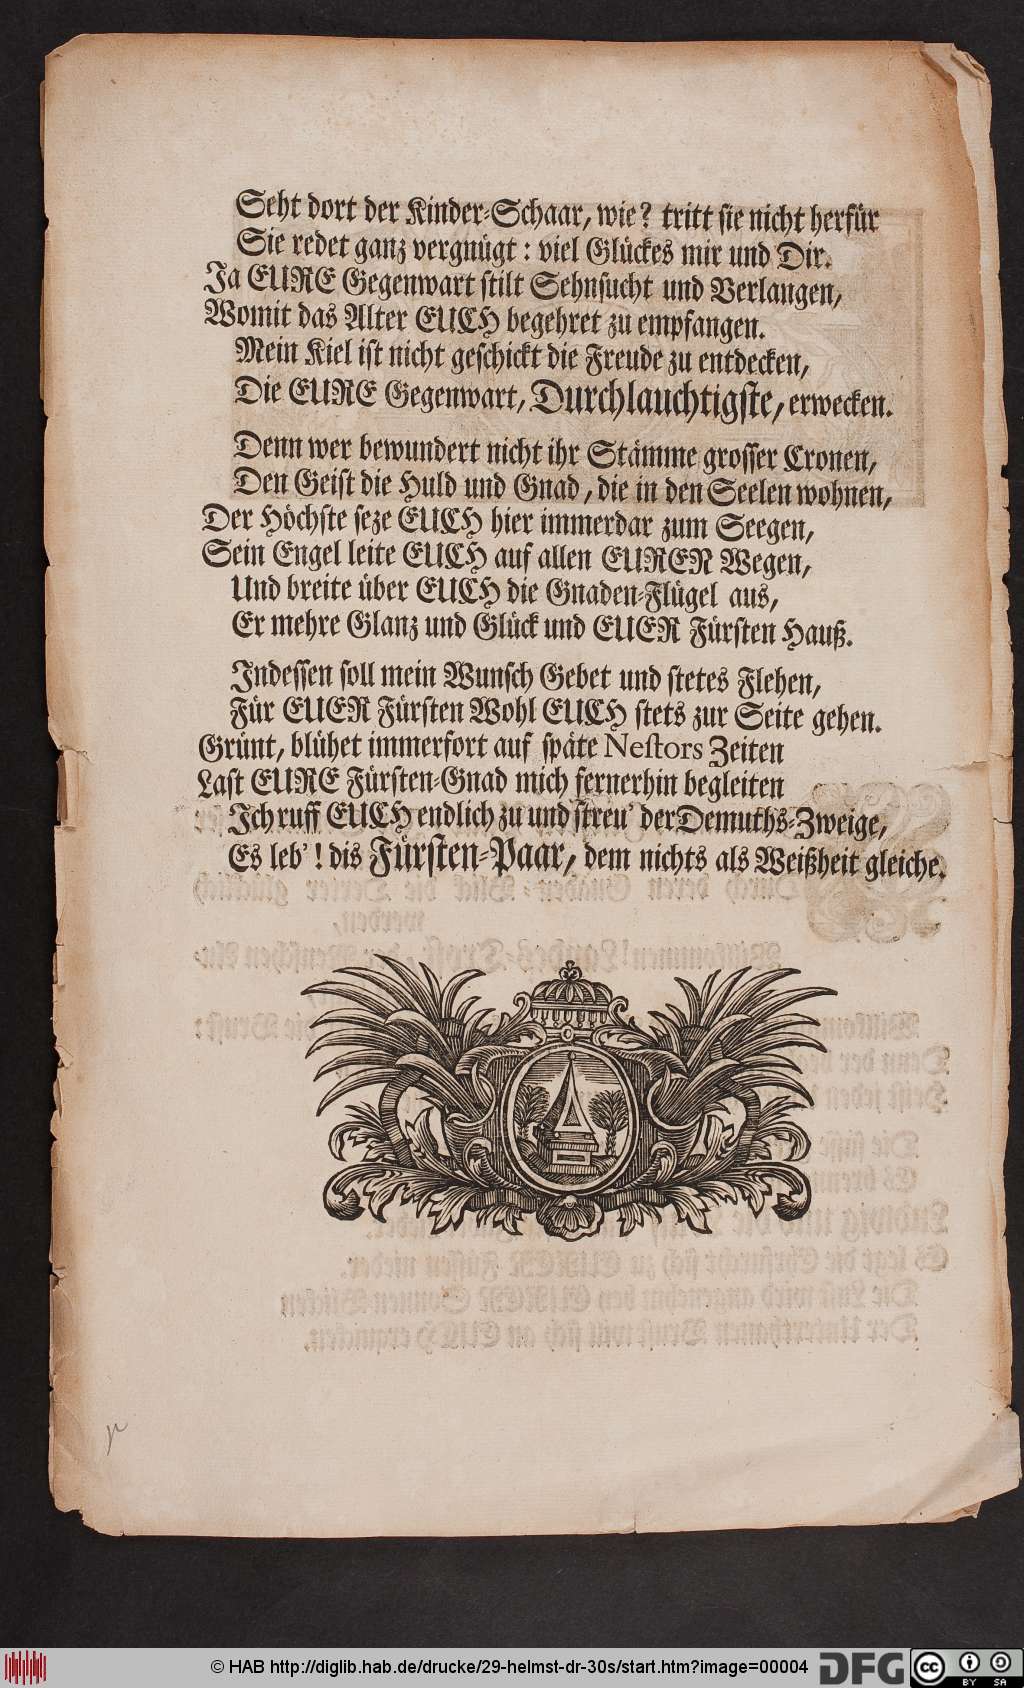 Seht dort der Kinder-Schaar, wie? tritt sie nicht herfür
Sie redet ganz vergnügt: viel Glückes mir und Dir.
Ja EURE Gegenwart stilt Sehnsucht und Verlangen,
Womit das Alter EUCH begehret zu empfangen.
Mein Kiel ist nicht geschickt die Freude zu entdecken,
Die EURE Gegenwart, Durchlauchtigste, erwecken.
Denn wer bewundert nicht ihr Stämme grosser Cronen,
Den Geist die Huld und Gnad, die in den Seelen wohnen,
Der Höchste seze EUCH hier immerdar zum Seegen,
Sein Engel leite EUCH auf allen EUREN Wegen,
Und breite über EUCH die Gnaden-Flügel aus,
Er mehre Glanz und Glück und EUER Fürsten Hauß.
Indessen soll mein Wunsch Gebet und stetes Flehen,
Für EUER Fürsten Wohl EUCH stets zur Seite gehen.
Grünt, blühet immerfort auf späte Nestors Zeiten
Last EURE Fürsten-Gnad mich fernerhin begleiten
Ich ruff EUCH endlich zu und streu' der Demuths-Zweige,
Es leb'! dis Fürsten-Paar, dem nichts als Weißheit gleiche.
© HAB http://diglib.hab.de/drucke/29-helmst-dr-30s/start.htm?image=00004
DFG
cc
BY SA